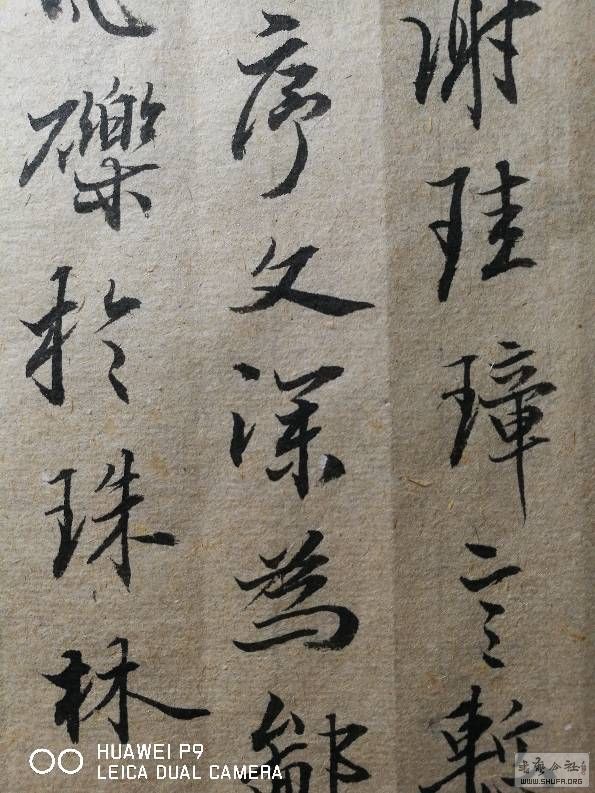 謝珪璋言慚
序文深為鄙
礫於珠林
HUAWEI P9
LEICA DUAL CAMERA
WWW.SHUFA.ORG